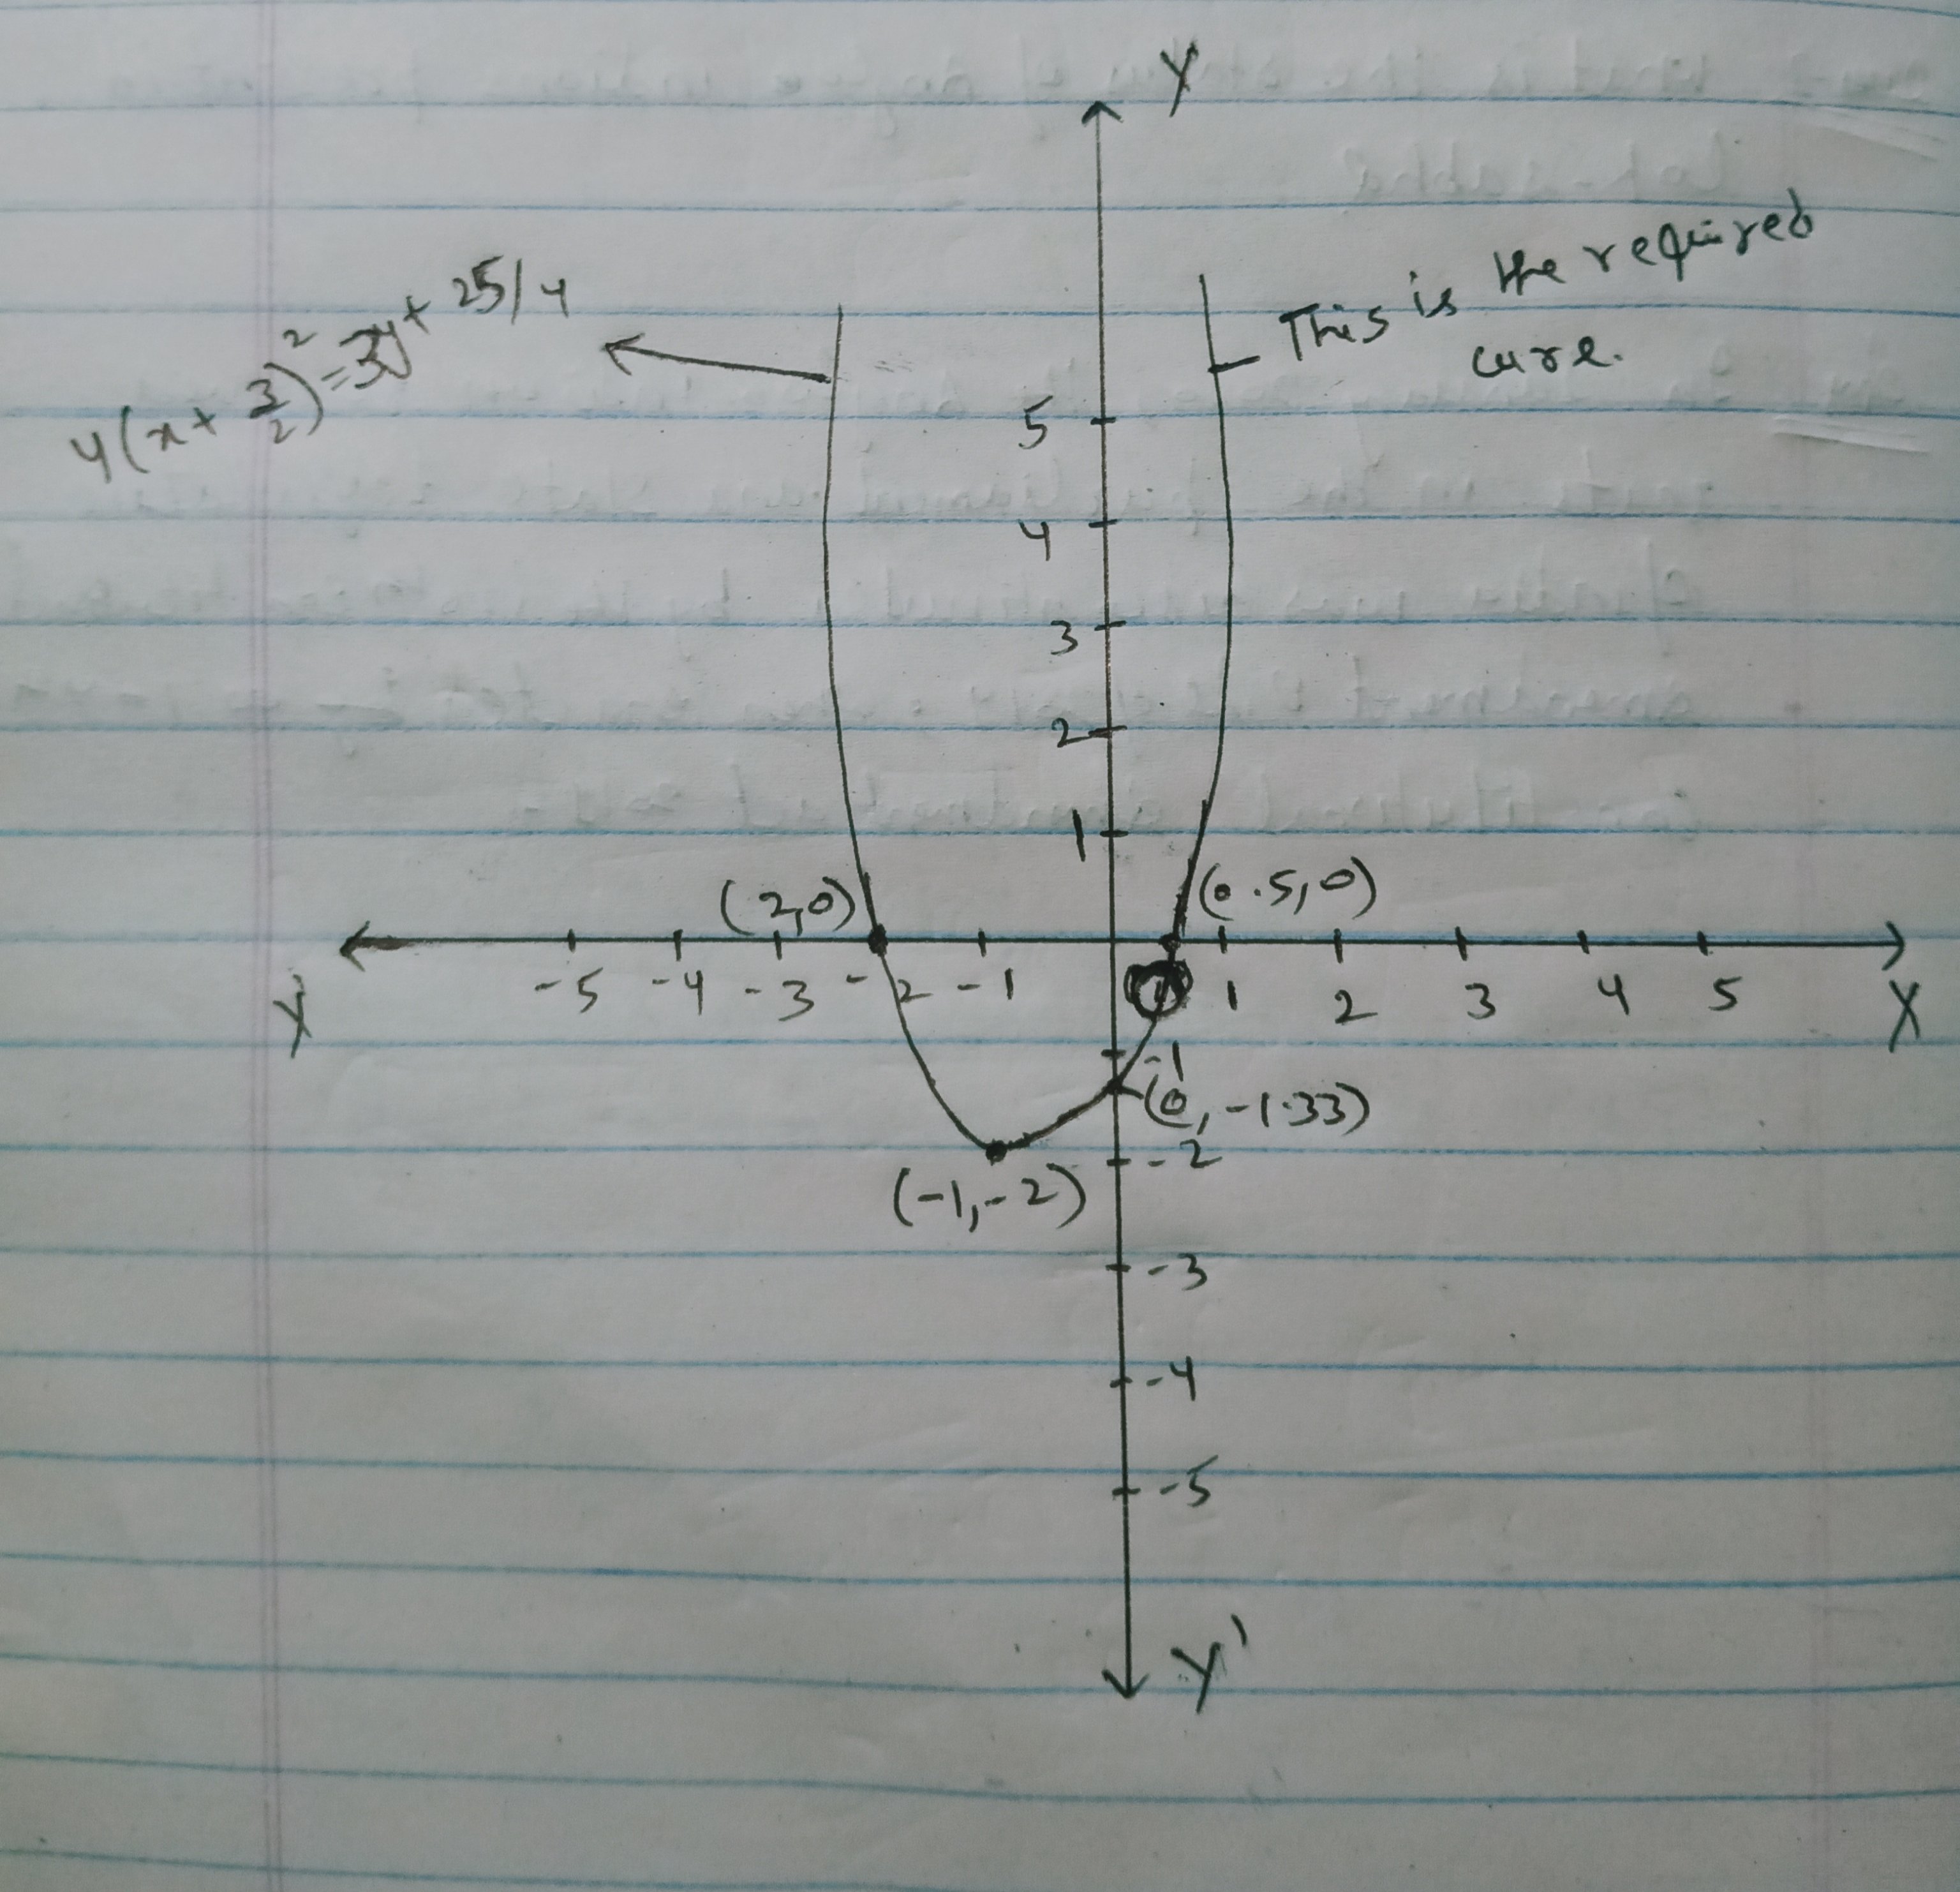 Y
This is the required
cure.
4(x + 3/2)² = 3y + 25/4
5
4
3
2
1
(2,0)
(0.5,0)
-5 -4 -3 -2 -1 1 2 3 4 5
X
-1
(0, -1.33)
-2
(-1,-2)
-3
-4
-5
Y'